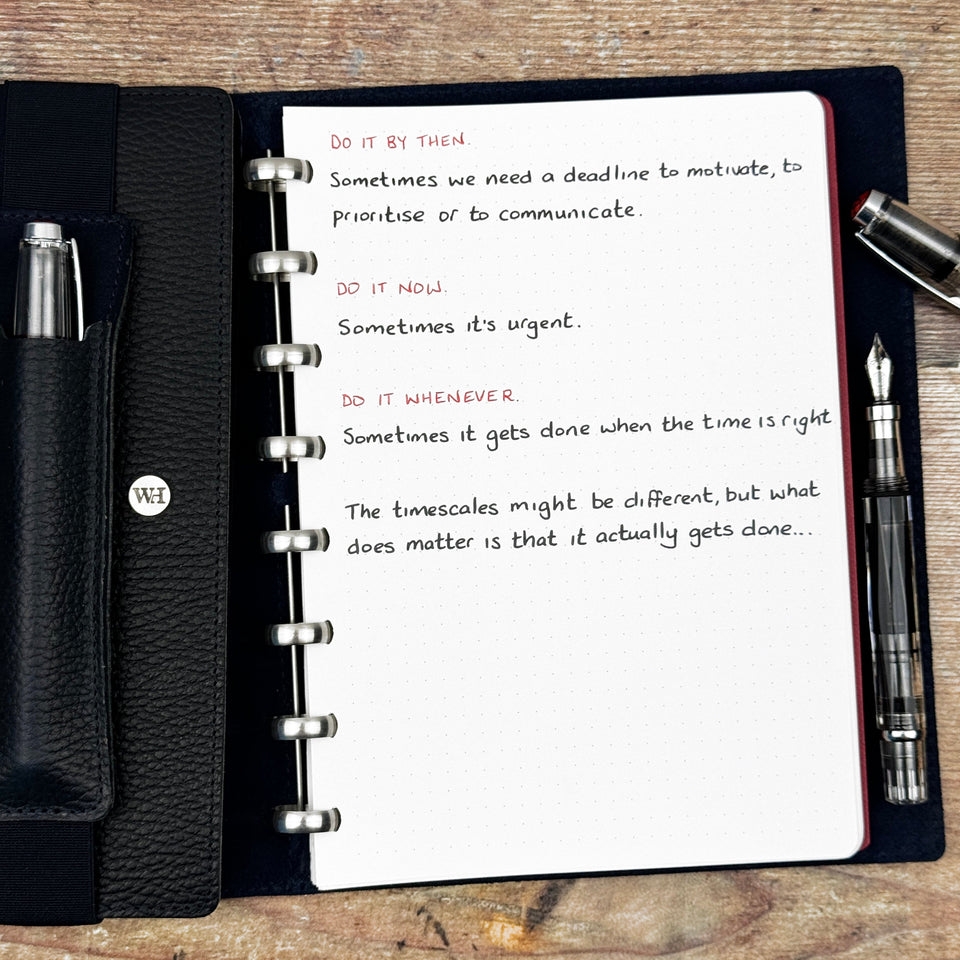 DO IT BY THEN.
Sometimes we need a deadline to motivate, to
prioritise or to communicate.
DO IT NOW.
Sometimes it's urgent.
DO IT WHENEVER.
Sometimes it gets done when the time is right
The timescales might be different, but what
does matter is that it actually gets done...
WH